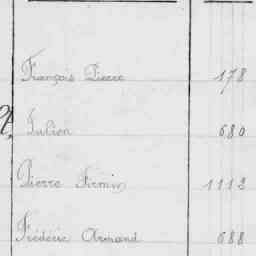 François Pierre 178
Julien 680
Pierre Firmin 1113
Frédéric Armand 688